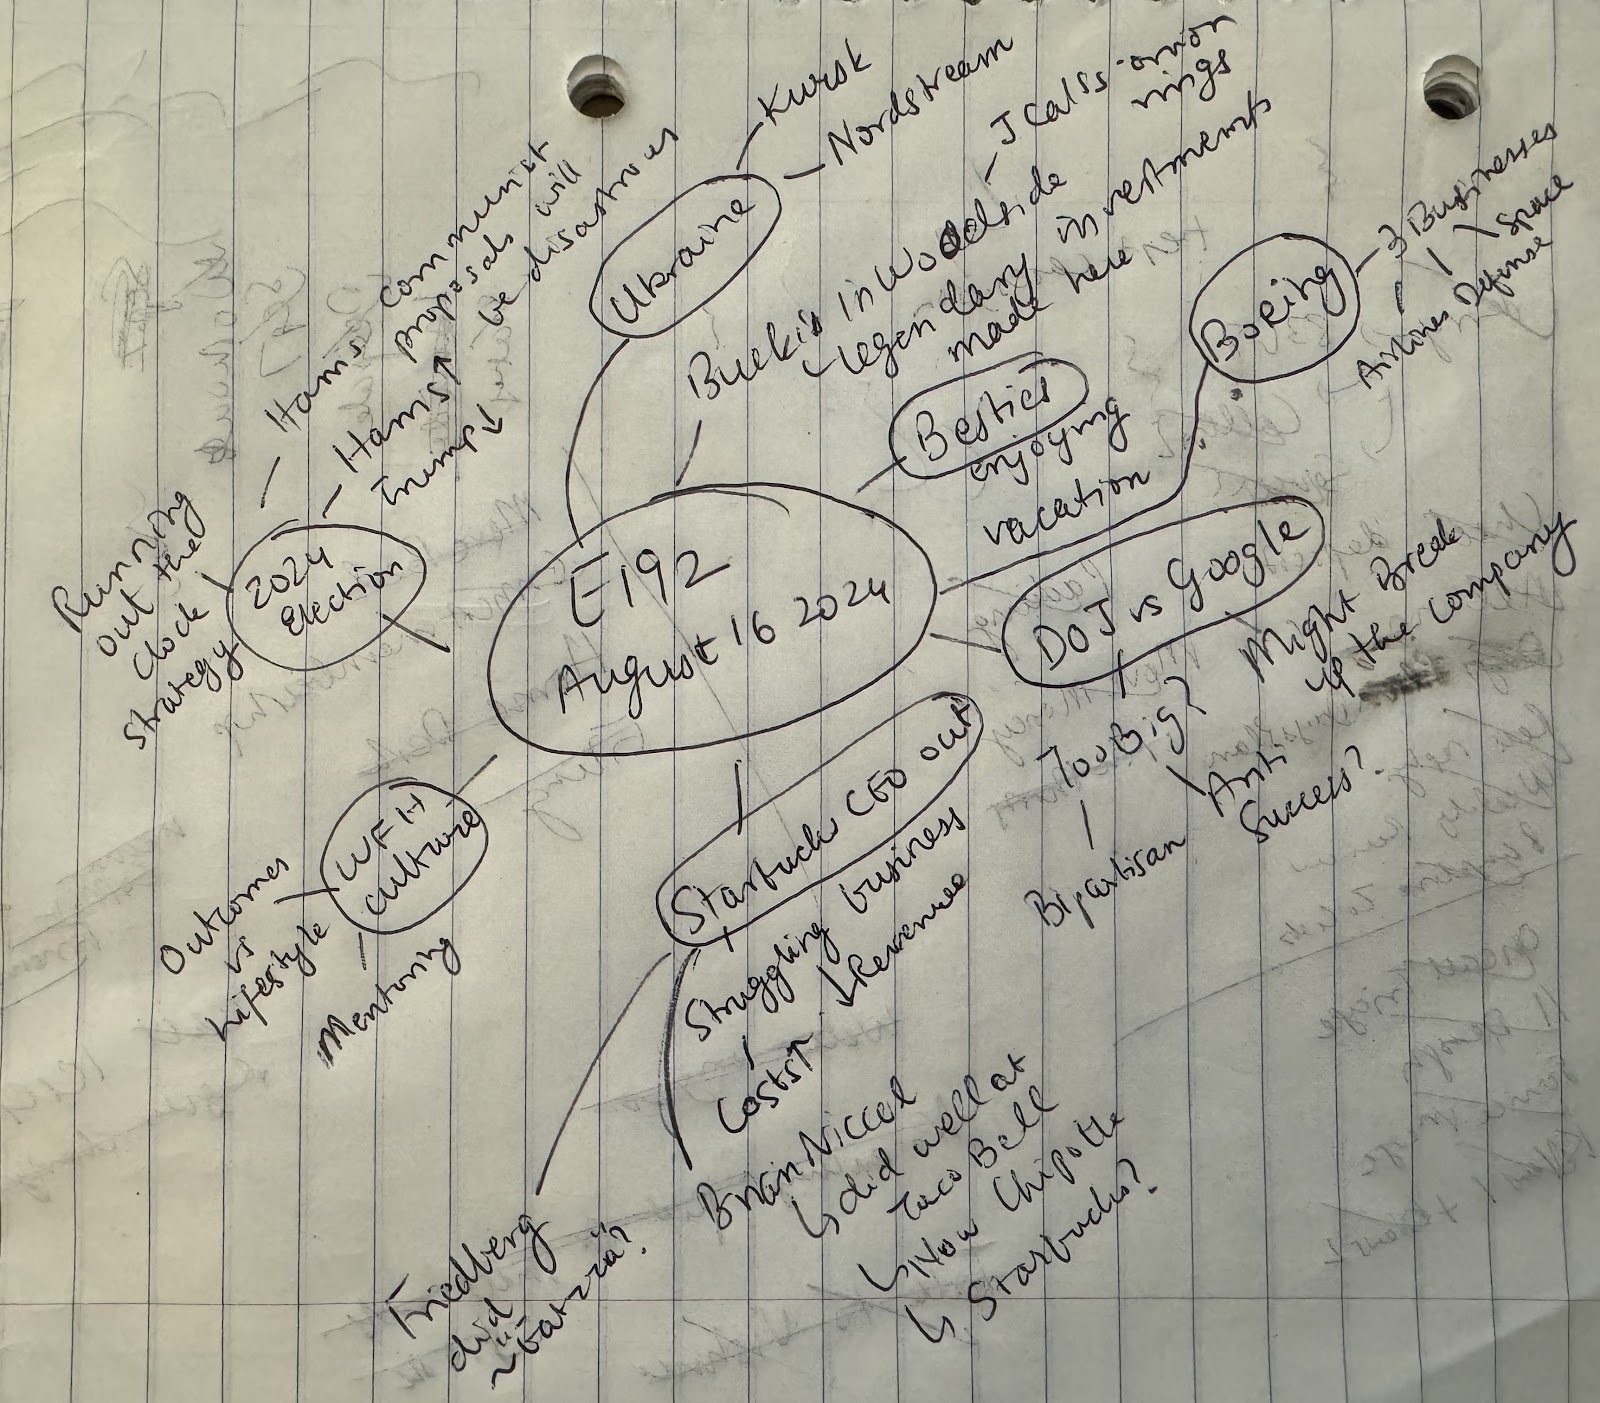 E192
August 16 2024
Ukraine
Kursk
Nordstream
Buck's in Woodside
J Cal ss onion
rings
legendary investments
made here
Besties
enjoying
vacation
Boeing
3 Businesses
Airlines
Defense
Space
DOJ vs Google
Might Break
up the company
Too Big?
Bipartisan
Anti
Success?
Starbucks CEO out
Struggling business
Costs↑
↓Revenue
Brian Niccol
↳did well at
Taco Bell
↳Now Chipotle
↳Starbucks?
Friedberg
did
~"Eatzza"?
WFH
culture
Outcomes
vs
Lifestyle
Mentoring
2024
Election
Running
out the
clock
strategy
Harris communist
proposals will
be disastrous
Harris↑
Trump↓